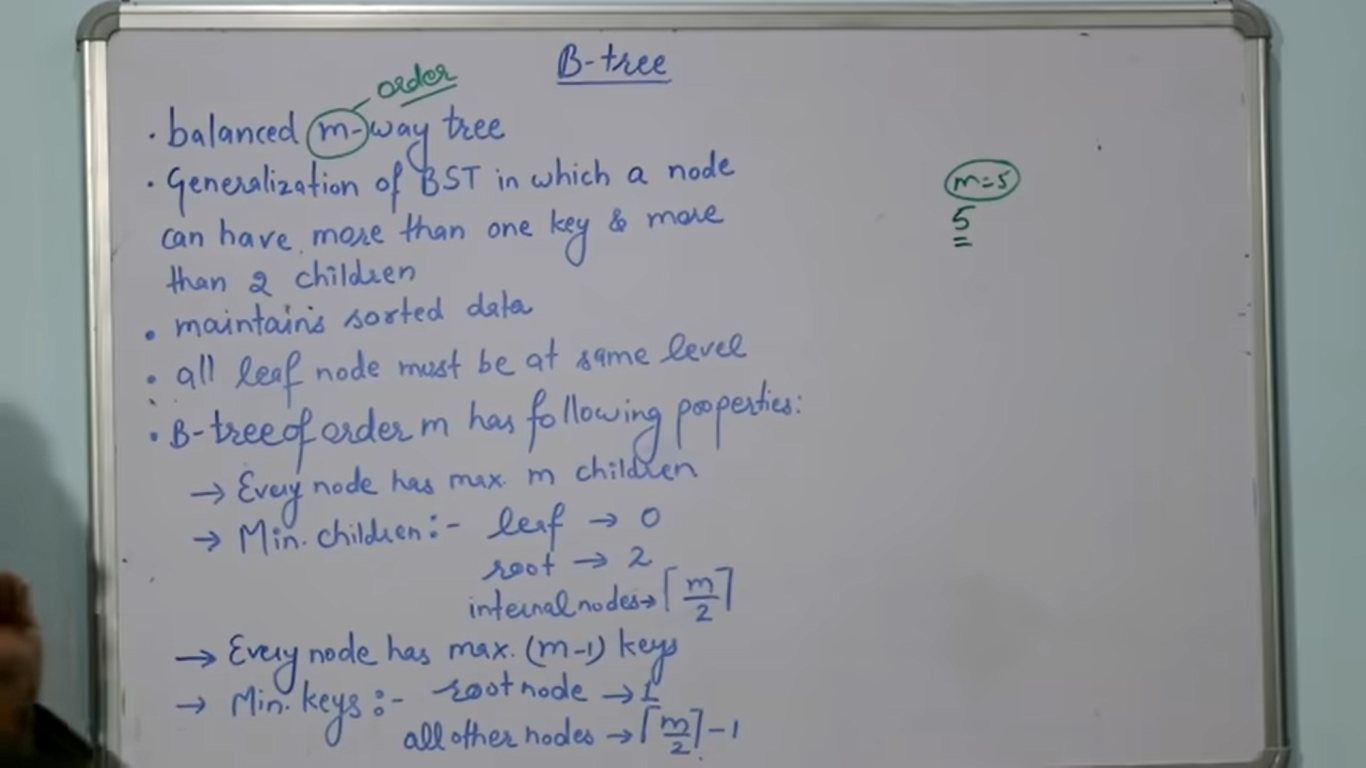 B-tree
order
· balanced m-way tree
· Generalization of BST in which a node
can have more than one key & more
than 2 children
• maintains sorted data
• all leaf node must be at same level
• B-tree of order m has following properties:
→ Every node has max. m children
→ Min. children:- leaf → 0
root → 2
internal nodes → ⌈m/2⌉
→ Every node has max. (m-1) keys
→ Min. keys:- root node → 1
all other nodes → ⌈m/2⌉-1
m=5
5